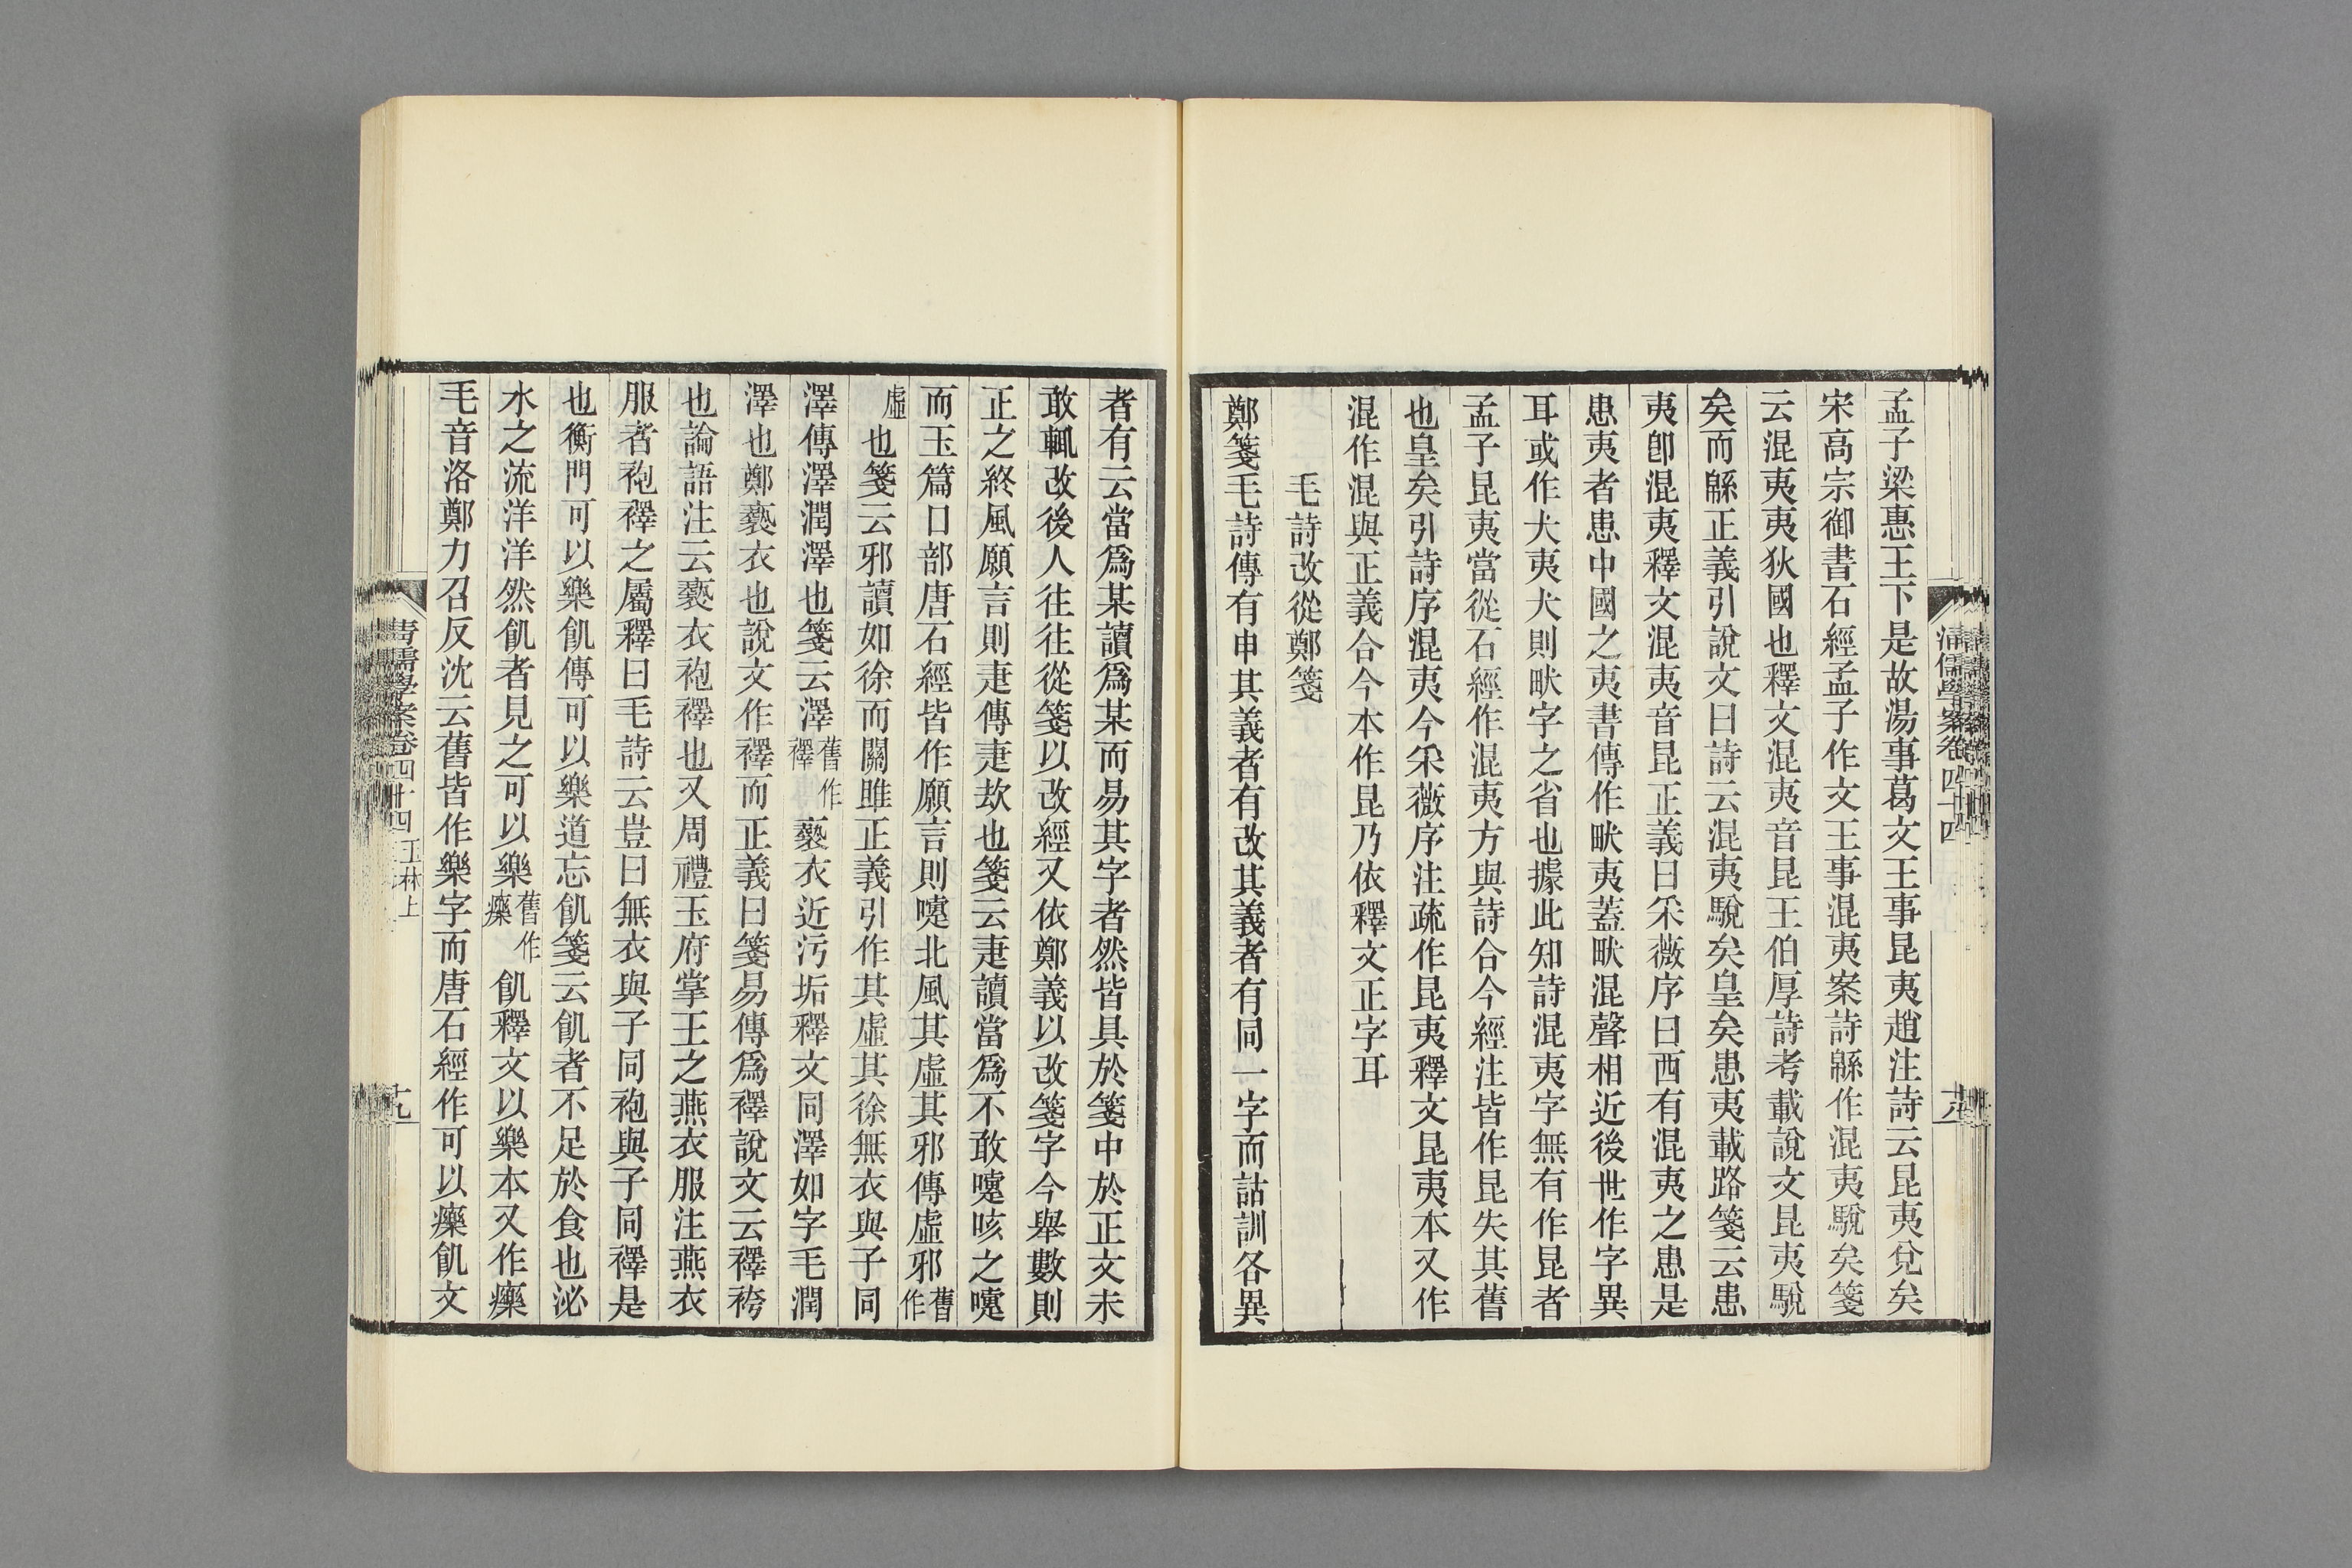 孟子梁惠王下是故湯事葛文王事昆夷趙注詩云昆夷兌矣
宋高宗御書石經孟子作文王事混夷案詩緜作混夷駾矣箋
云混夷夷狄國也釋文混夷音昆王伯厚詩考載說文昆夷駾
矣而緜正義引說文曰詩云混夷駾矣皇矣患夷載路箋云患
夷卽混夷釋文混夷音昆正義曰采薇序曰西有混夷之患是
患夷者患中國之夷書傳作畎夷蓋畎混聲相近後世作字異
耳或作犬夷犬則畎字之省也據此知詩混夷字無有作昆者
孟子昆夷當從石經作混夷方與詩合今經注皆作昆失其舊
也皇矣引詩序混夷今采薇序注疏作昆夷釋文昆夷本又作
混作混與正義合今本作昆乃依釋文正字耳
毛詩改從鄭箋
鄭箋毛詩傳有申其義者有改其義者有同一字而詁訓各異
者有云當爲某讀爲某而易其字者然皆具於箋中於正文未
敢輒改後人往往從箋以改經又依鄭義以改箋字今舉數則
正之終風願言則疌傳疌㰦也箋云疌讀當爲不敢嚏咳之嚏
而玉篇口部唐石經皆作願言則嚏北風其虛其邪傳虛邪舊作
虛也箋云邪讀如徐而關雎正義引作其虛其徐無衣與子同
澤傳澤潤澤也箋云澤舊作襗褻衣近污垢釋文同澤如字毛潤
澤也鄭褻衣也說文作襗而正義曰箋易傳爲襗說文云襗袴
也論語注云褻衣袍襗也又周禮玉府掌王之燕衣服注燕衣
服者袍襗之屬釋曰毛詩云豈曰無衣與子同袍與子同襗是
也衡門可以樂飢傳可以樂道忘飢箋云飢者不足於食也泌
水之流洋洋然飢者見之可以樂舊作𤻲飢釋文以樂本又作𤻲
毛音洛鄭力召反沈云舊皆作樂字而唐石經作可以𤻲飢文
清儒學案卷四十四
清儒學案卷四十四 玉林上
十九